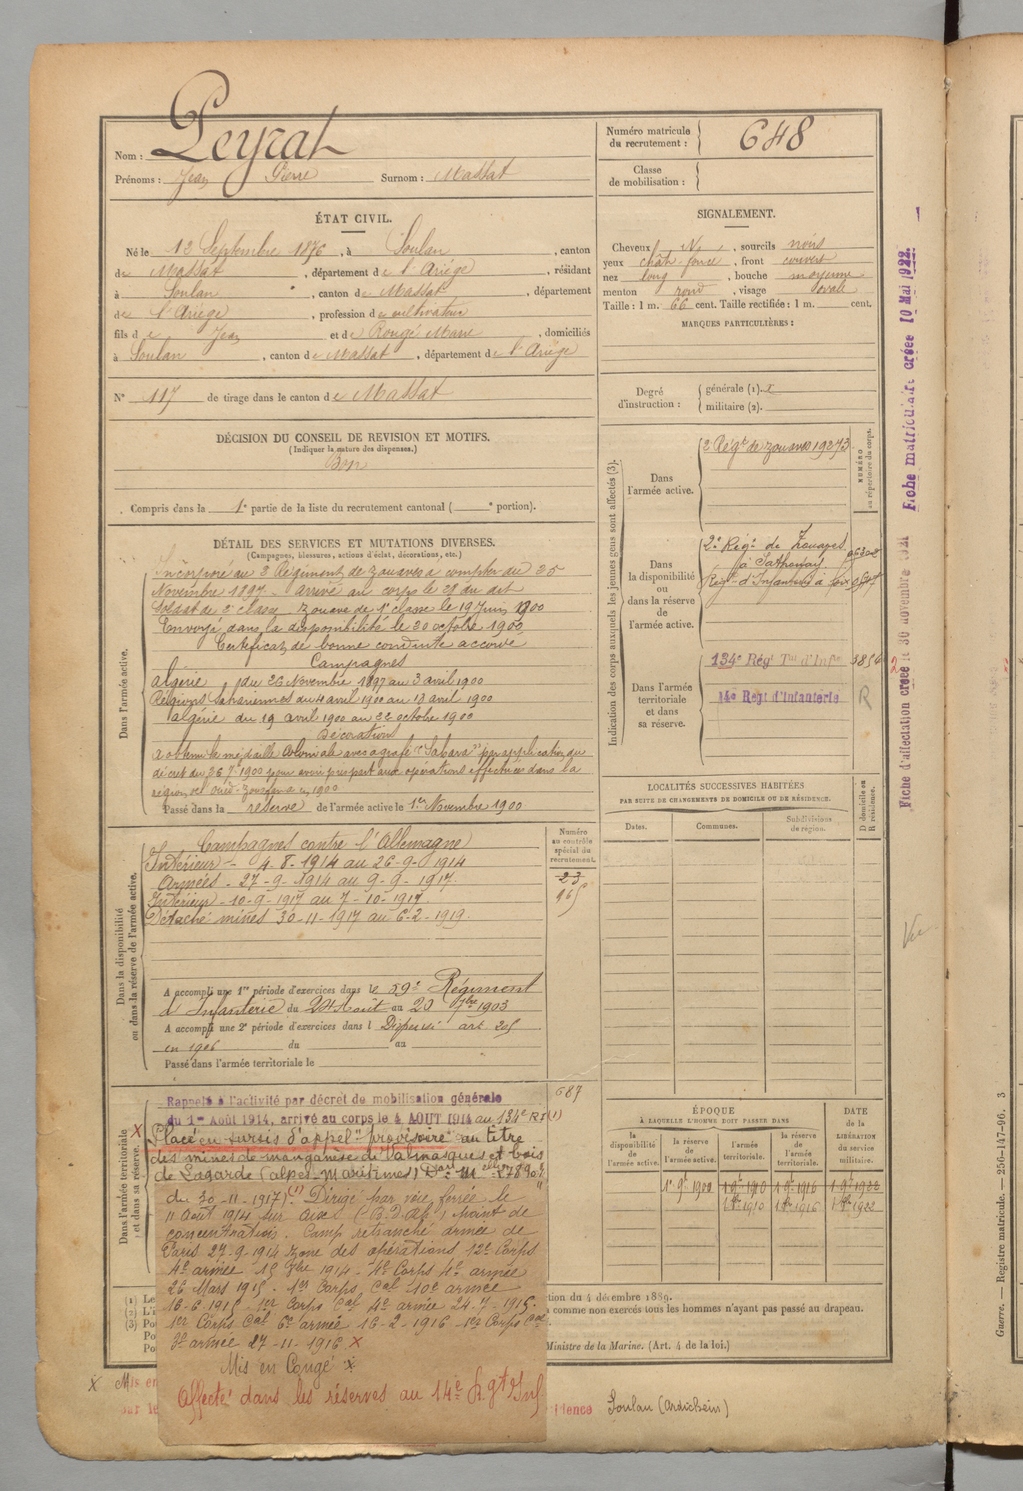 Nom : Peyrat
Prénoms : Jean Pierre Surnom : Massat
Numéro matricule du recrutement : 648
Classe de mobilisation :
ÉTAT CIVIL.
Né le 12 Septembre 1876, à Soulan, canton
de Massat, département de l'Ariége, résidant
à Soulan, canton de Massat, département
de l'Ariége, profession de cultivateur
fils de Jean et de Rougé Marie, domiciliés
à Soulan, canton de Massat, département de l'Ariége
N° 117 de tirage dans le canton de Massat
DÉCISION DU CONSEIL DE REVISION ET MOTIFS.
(Indiquer la nature des dispenses.)
Bon
Compris dans la 1e partie de la liste du recrutement cantonal ( e portion).
SIGNALEMENT.
Cheveux N, sourcils noirs
yeux chât foncé, front couvert
nez long, bouche moyenne
menton rond, visage ovale
Taille : 1 m. 66 cent. Taille rectifiée : 1 m. cent.
MARQUES PARTICULIÈRES :
Degré d'instruction : générale (1).
militaire (2).
DÉTAIL DES SERVICES ET MUTATIONS DIVERSES.
(Campagnes, blessures, actions d'éclat, décorations, etc.)
Dans l'armée active.
Incorporé au 2 Régiment de zouaves à compter du 25
Novembre 1897. Arrivé au corps le 28 du dit
Soldat de 2e classe zouave de 1e classe le 19 juin 1900
Envoyé dans la disponibilité le 20 octobre 1900
Certificat de bonne conduite accordé
Campagnes
Algérie du 26 Novembre 1897 au 3 avril 1900
Régions Sahariennes du 4 avril 1900 au 18 avril 1900
Algérie du 19 avril 1900 au 22 octobre 1900
Décoration
A obtenu la médaille Coloniale avec agrafe "Sahara" par application du
décret du 26 7e 1900 pour avoir pris part aux opérations effectuées dans la
région en 1900
Passé dans la réserve de l'armée active le 1er Novembre 1900
Indication des corps auxquels les jeunes gens sont affectés (3).
NUMÉRO au répertoire du corps.
Dans l'armée active.
2 Régt de zouaves 19273
Dans la disponibilité ou dans la réserve de l'armée active.
2e Régt de Zouaves
à Sathonay
Régt d'Infanterie à Foix
Dans l'armée territoriale et dans sa réserve.
134e Régt Tal d'Infie
14e Régt d'Infanterie R
Dans la disponibilité ou dans la réserve de l'armée active.
Numéro au contrôle spécial du recrutement.
23
965
Campagnes contre l'Allemagne
Intérieur - 4-8-1914 au 26-9-1914
Armées - 27-9-1914 au 9-9-1917.
Intérieur - 10-9-1917 au 7-10-1917.
Détaché mines 30-11-1917 au 6-2-1919.
A accompli une 1re période d'exercices dans le 59e Régiment
d'Infanterie du 24 Août au 20 7bre 1903
A accompli une 2e période d'exercices dans l Dispensé art 205
en 1906 du au
Passé dans l'armée territoriale le
LOCALITÉS SUCCESSIVES HABITÉES
PAR SUITE DE CHANGEMENTS DE DOMICILE OU DE RÉSIDENCE.
Dates. Communes. Subdivisions de région. D domicile ou R résidence.
Dans l'armée territoriale et dans sa réserve.
687
Rappelé à l'activité par décret de mobilisation générale
du 1er Août 1914, arrivé au corps le 4 AOUT 1914 au 134e RI (1)
Placé en sursis d'appel "provisoire" au titre
des mines de manganèse de Valmasque et bois
de Lagarde (Alpes-Maritimes)
du 30-11-1917). (1) Dirigé par voie ferrée le
11 août 1914 sur Aix (B.D.R), point de
concentration. Camp retranché armée de
Paris 27-9-1914 zone des opérations 12e Corps
4e armée 15 1914 - 4e Corps 4e armée
26 Mars 1915 - 1er Corps Cal 10e armée
16-6-1915 1er Corps Cal 4e armée 24-7-1915.
1er Corps Cal 6e armée 16-2-1916 1er Corps Cal
3e armée 27-11-1916 X
Mis en Congé X
Affecté dans les réserves au 14e Rgt Inf
ÉPOQUE
À LAQUELLE L'HOMME DOIT PASSER DANS
la disponibilité de l'armée active. la réserve de l'armée active. l'armée territoriale. la réserve de l'armée territoriale.
DATE de la LIBÉRATION du service militaire.
1er 9e 1900 1er 9e 1910 1er 9e 1916 1er 9e 1922
1910 1916 1922
(1) Le
(2) L'i
(3) Po
Po
Po
tion du 4 décembre 1889.
comme non exercés tous les hommes n'ayant pas passé au drapeau.
Ministre de la Marine. (Art. 4 de la loi.)
X Mis en
par le
idence Soulan
Fiche matriculaire créée 10 Mai 1922.
Fiche d'affectation créée le 30 novembre 1921
Vu
Guerre. — Registre matricule. — 256-147-96. 3